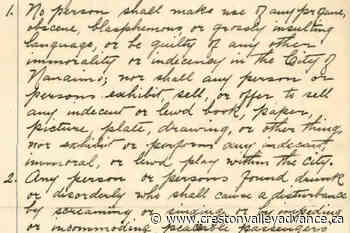 1. No person shall make use of any profane,
obscene, blasphemous, or grossly insulting
language, or be guilty of any other
immorality or indecency in the City of
Nanaimo; nor shall any person or
persons exhibit, sell, or offer to sell
any indecent or lewd book, paper,
picture, plate, drawing, or other thing,
nor exhibit or perform any indecent
immoral, or lewd play within the city.
2. Any person or persons found drunk
or disorderly who shall cause a disturbance
by screaming or singing, and impeding
or incommoding peaceable passengers
© www.crestonvalleyadvance.ca